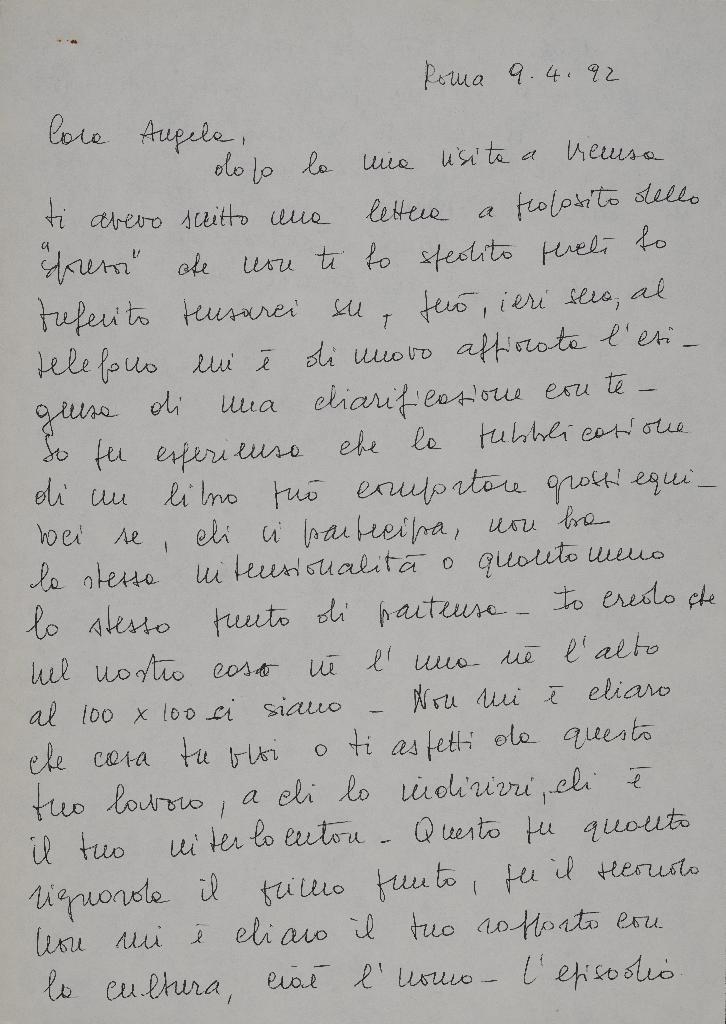 Roma 9.4.92
Cara Angela,
dopo la mia visita a Vicenza
ti avevo scritto una lettera a proposito dello
che non ti ho spedito perchè ho
preferito pensarci su, però, ieri sera, al
telefono mi è di nuovo affiorata l'esi-
genza di una chiarificazione con te -
So per esperienza che la pubblicazione
di un libro può comportare grossi equi-
voci se, chi ci partecipa, non ha
la stessa intenzionalità o quanto meno
lo stesso punto di partenza - Io credo che
nel nostro caso nè l'una nè l'altro
al 100 x 100 ci siano - Non mi è chiaro
che cosa tu vuoi o ti aspetti da questo
tuo lavoro, a chi lo indirizzi, chi è
il tuo interlocutore - Questo per quanto
riguarda il primo punto, per il secondo
non mi è chiaro il tuo rapporto con
la cultura, cioè l'uomo - L'episodio